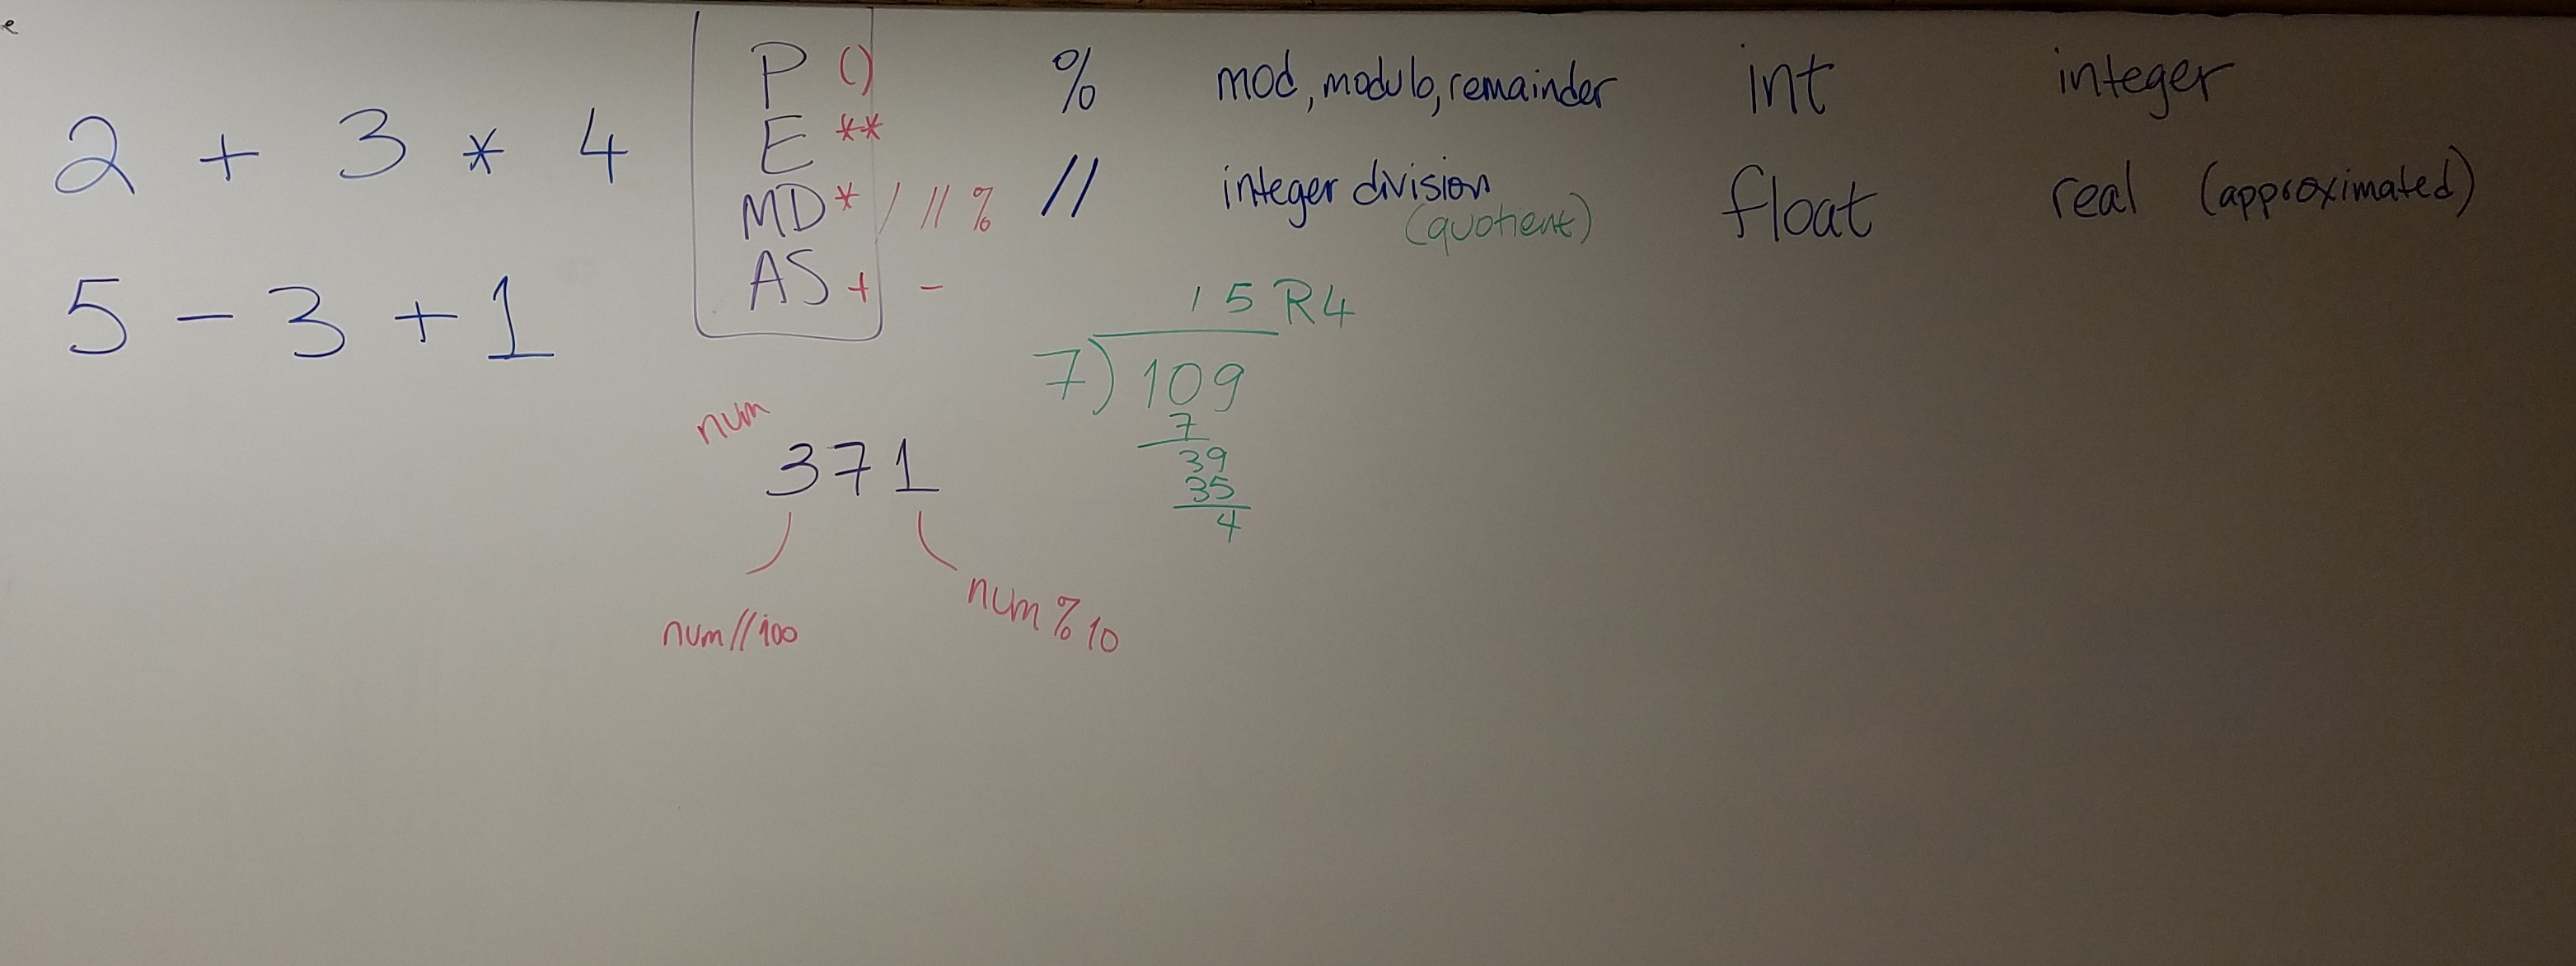 e
2 + 3 * 4
5 - 3 + 1
P ()
E **
MD * / // %
AS + -
% mod, modulo, remainder
// integer division
(quotient)
int integer
float real (approximated)
15 R4
7)109
7
39
35
4
num
371
num//100
num % 10